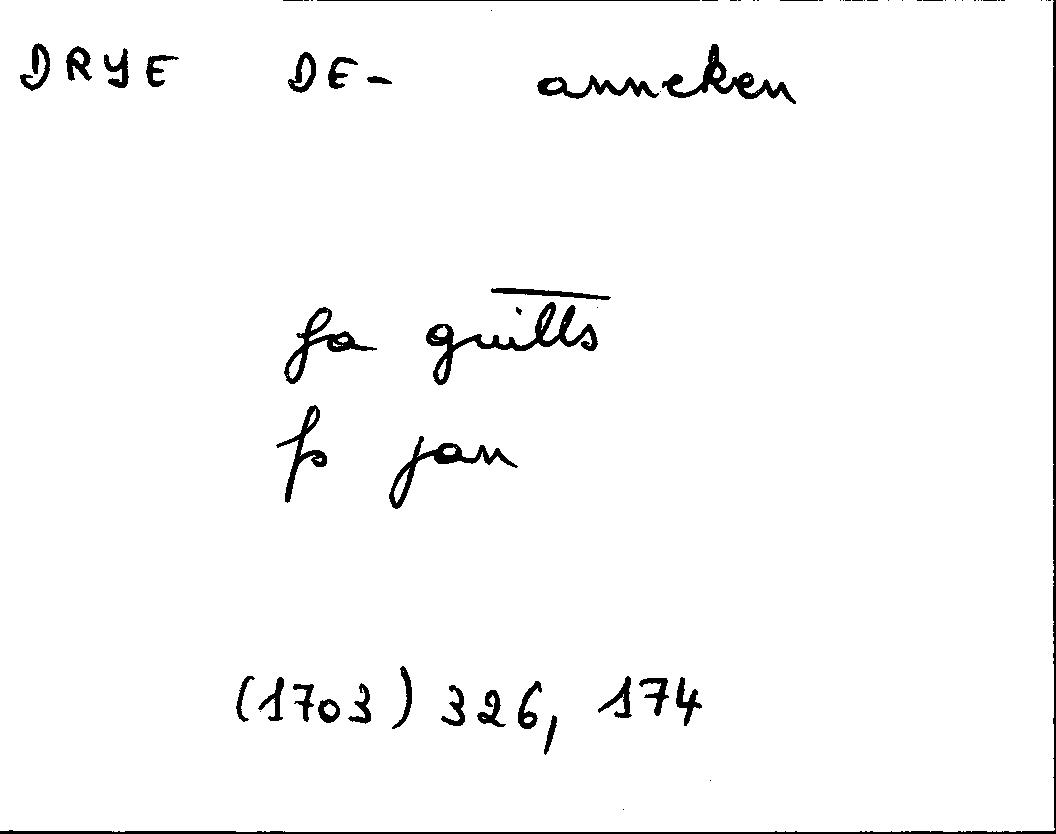 DRYE DE- anneken
fa guills
fs jan
(1703) 326, 174